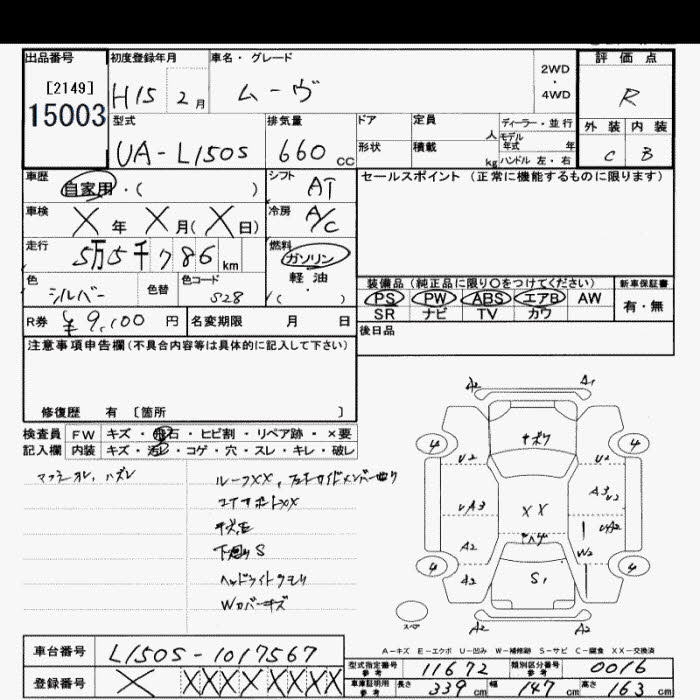 出品番号
[2149]
15003
初度登録年月
H15 2月
車名・グレード
ムーヴ
2WD
・
4WD
評価点
R
外装 内装
C B
型式
UA-L150S
排気量
660 CC
ドア
定員
人
形状
積載
kg
ディーラー・並行
モデル年式 年
ハンドル 左・右
車歴
自家用・( )
シフト
AT
セールスポイント (正常に機能するものに限ります)
車検
X年 X月(X日)
冷房
A/C
走行
5万5千786km
燃料
ガソリン
軽油
・
( )
色
シルバー
色替
色コード
S28
装備品(純正品に限り○をつけてください)
新車保証書
PS PW ABS エアB AW
SR ナビ TV カワ
有・無
R券 ¥9,100円
名変期限 月 日
後日品
注意事項申告欄(不具合内容等は具体的に記入して下さい)
修復歴 有 〔箇所 〕
検査員 FW キズ・飛石・ヒビ割・リペア跡・×要
記入欄 内装 キズ・汚レ・コゲ・穴・スレ・キレ・破レ
マフラーオレ、ハズレ
ルーフXX、
コアサポートXX
下廻りS
ヘッドライトクモリ
Wカバーキズ
A2 A1
キズワ
4 4
U2 U2
UA3 XX A3 U2
A2 UA2
W2
4 4
A2 S1
スペア
A2 A2
A-キズ E-エクボ U-凹み W-補修跡 S-サビ C-腐食 XX-交換済
車台番号 L150S-1017567
登録番号 X XXXXXXXX
型式指定番号 参考 11672
類別区分番号 参考 0016
車庫証明用 参考 長さ 339cm 幅 147cm 高さ 163cm